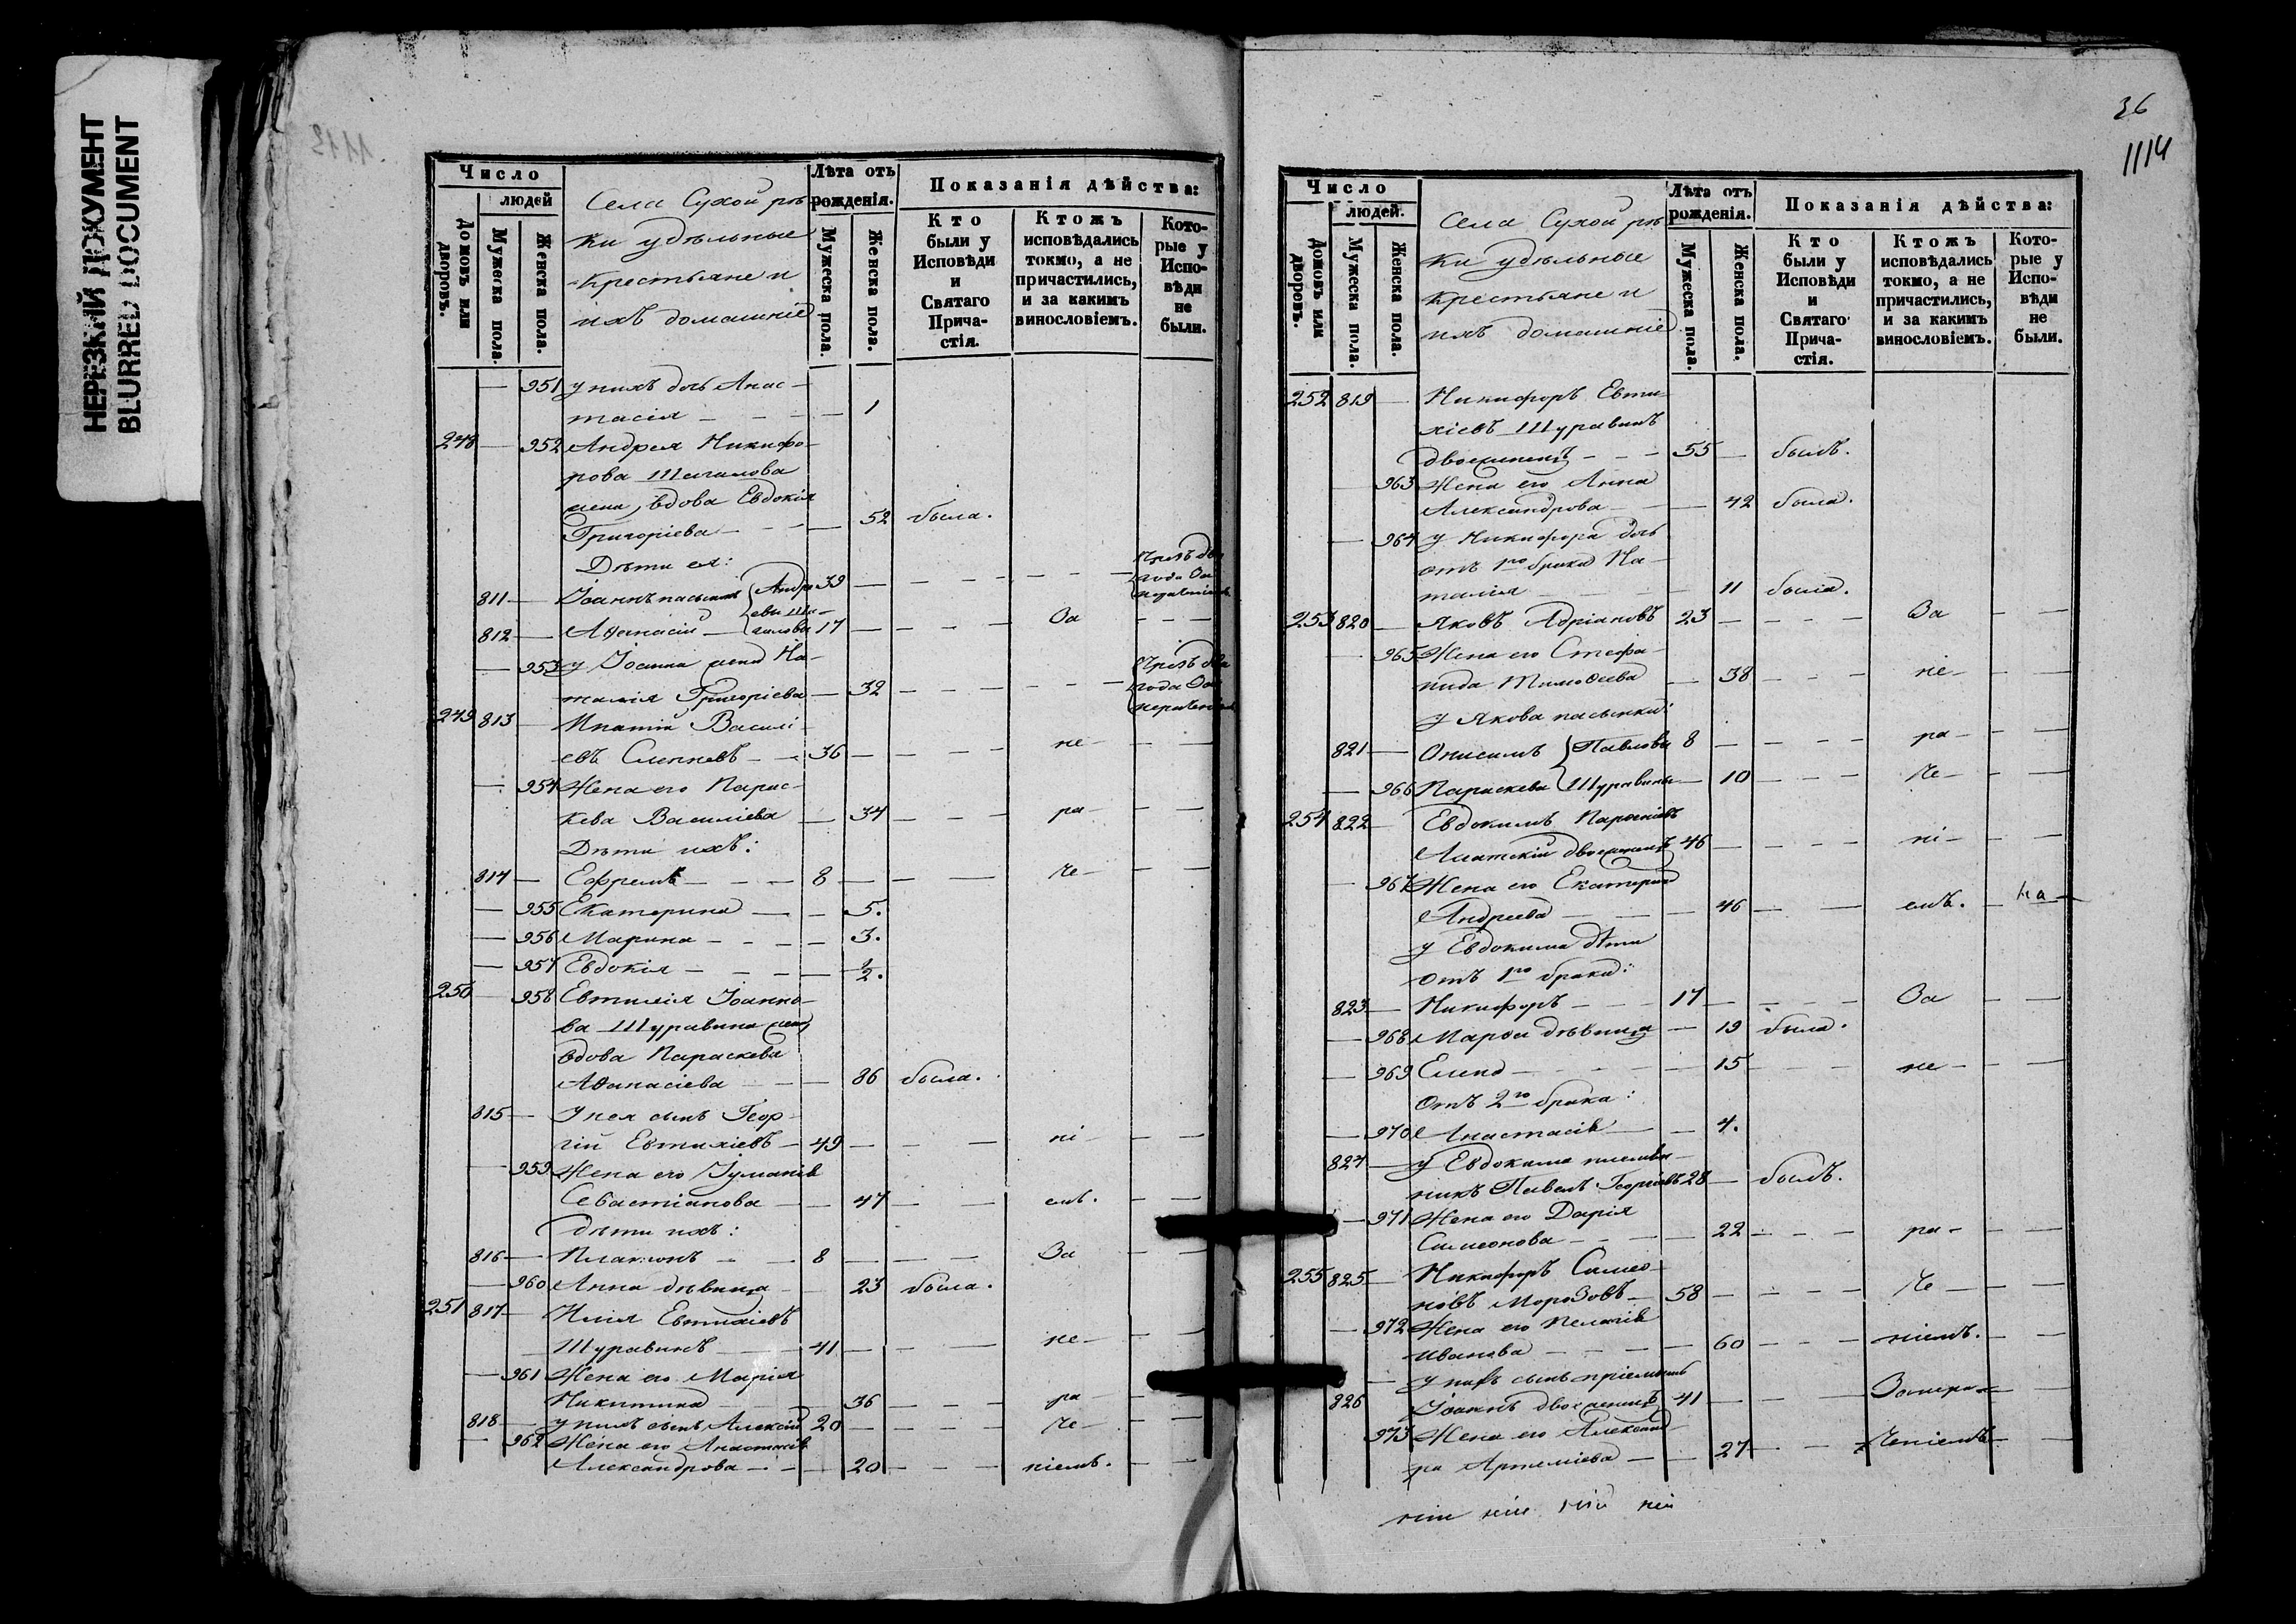 НЕРЕЗКИЙ ДОКУМЕНТ
BLURRED DOCUMENT
1113
Число
людей
Домовъ или дворовъ.
Мужеска пола.
Женска пола.
Села Сухой рѣ
ки удѣльные
крестьяне и
ихъ домашніе
Лѣта отъ рожденія.
Мужеска пола.
Женска пола.
Показанія дѣйства:
Кто были у Исповѣди и Святаго Прича-стія.
Ктожъ исповѣдались токмо, а не причастились, и за какимъ винословіемъ.
Кото-рые у Испо-вѣди не были.
— 951 у нихъ дочь Анас-
тасія — — — — 1
248 — 952 Андрея Никифо-
рова Шагалова
жена, вдова Евдокія
Григоріева — — — 52 была.
Дѣти ея:
811 — Іоаннъ пасынокъ Андре 39 — — — — — —
812 — Аѳанасій — 17 — — — — За — — —
— 953 у Іоанна жена На-
талія Григоріева — 32 — — — — — —
249 813 — Ипатій Василі-
евъ — — 36 — — — не — — —
— 954 Жена его Парас-
кева Василіева — 34 — — — ра — — —
Дѣти ихъ:
814 — Ефремъ — — — 8 — — — че — — —
— 955 Екатерина — — 5.
— 956 Марина — — — — 3.
— 957 Евдокія — — — — 1/2.
250 — 958 Евтихія Іоанно-
ва Шуравина жена
вдова Параскева
Аѳанасіева — — 86 была.
815 — У нея сынъ Геор-
гій Евтихіевъ — 49 — — — ні — — —
— 959 Жена его Іуліанія
Севастіанова — — 47 — — емъ. — —
дѣти ихъ:
816 — Платонъ — — 8 — — — За — —
— 960 Анна дѣвица — 23 была.
251 817 — Илія Евтихіевъ
Шуравинъ — 41 — — — не — — —
— 961 Жена его Марія
Никитина — 36 — — — ра — — —
818 — у нихъ сынъ Алексій 20 — — — — че — — —
— 962 Жена его Анастасія
Александрова — — — 20 — — — ніемъ. — —
36
1114
Число
людей.
Домовъ или дворовъ.
Мужеска пола.
Женска пола.
Села Сухой рѣ
ки удѣльные
крестьяне и
ихъ домашніе
Лѣта отъ рожденія.
Мужеска пола.
Женска пола.
Показанія дѣйства:
Кто были у Исповѣди и Святаго Прича-стія.
Ктожъ исповѣдались токмо, а не причастились, и за какимъ винословіемъ.
Кото-рые у Испо-вѣди не были.
252 819 — Никифоръ Евти-
хіевъ Шуравинъ
двоеженецъ — — — 55 — былъ.
963 Жена его Анна
Александрова — — 42 была.
— 964 у Никифора дочь
отъ 1го брака На-
талія — — 11 была.
253 820 — Яковъ Адріановъ 23 — — — — За — —
965 Жена его Стефа-
нида Тимоѳеева — 38 — — — не — — —
у Якова пасынки:
821 — Онисимъ Павловы 8 — — — — ра — — —
— 966 Параскева Шуравины — 10 — — — че — — —
254 822 — Евдокимъ
двоеженецъ 46 — — — — ні — — —
— 967 Жена его Екатерина
Андреева — — — 46 — — емъ. — на —
у Евдокима дѣти
отъ 1го брака:
823 — Никифоръ — — — 17 — — — — За — —
— 968 Марѳа дѣвица — 19 была.
— 969 Елена — — — — 15 — — — не — — —
отъ 2го брака:
— 970 Анастасія — — 4.
824 — у Евдокима племян-
никъ Павелъ Георгіевъ 28 — былъ.
— 971 Жена его Дарія
Симеонова — — — 22 — — — ра — — —
255 825 — Никифоръ Симео-
новъ Морозовъ — 58 — — — — че — — —
— 972 Жена его Пелагія
Иванова — — — — 60 — — — ніемъ. — —
— у нихъ сынъ пріемышъ
826 Іоаннъ двоеженецъ 41 — — — —
973 Жена его Александ-
ра Артеміева — — 27 — — — —